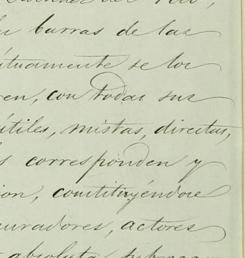 barras de las
ituamente se los
ren, con todas sus
útiles, mistas, directas,
s corresponden y
ion, constituyéndose
curadores, actores
absoluta